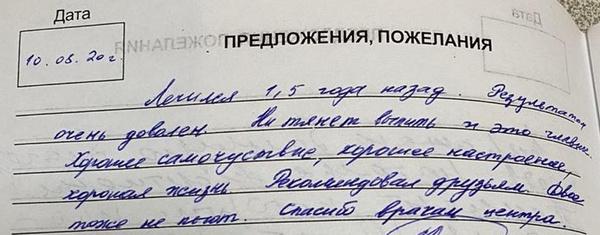 Дата
Дата
10.03.20г.
ПРЕДЛОЖЕНИЯ, ПОЖЕЛАНИЯ
Лечился 1,5 года назад. Результатом
очень доволен. Не тянет выпить и это главное.
Хорошее самочуствие, хорошее настроение,
хорошая жизнь. Рекомендовал друзьям. Двое
тоже не пьют. Спасибо врачам центра.